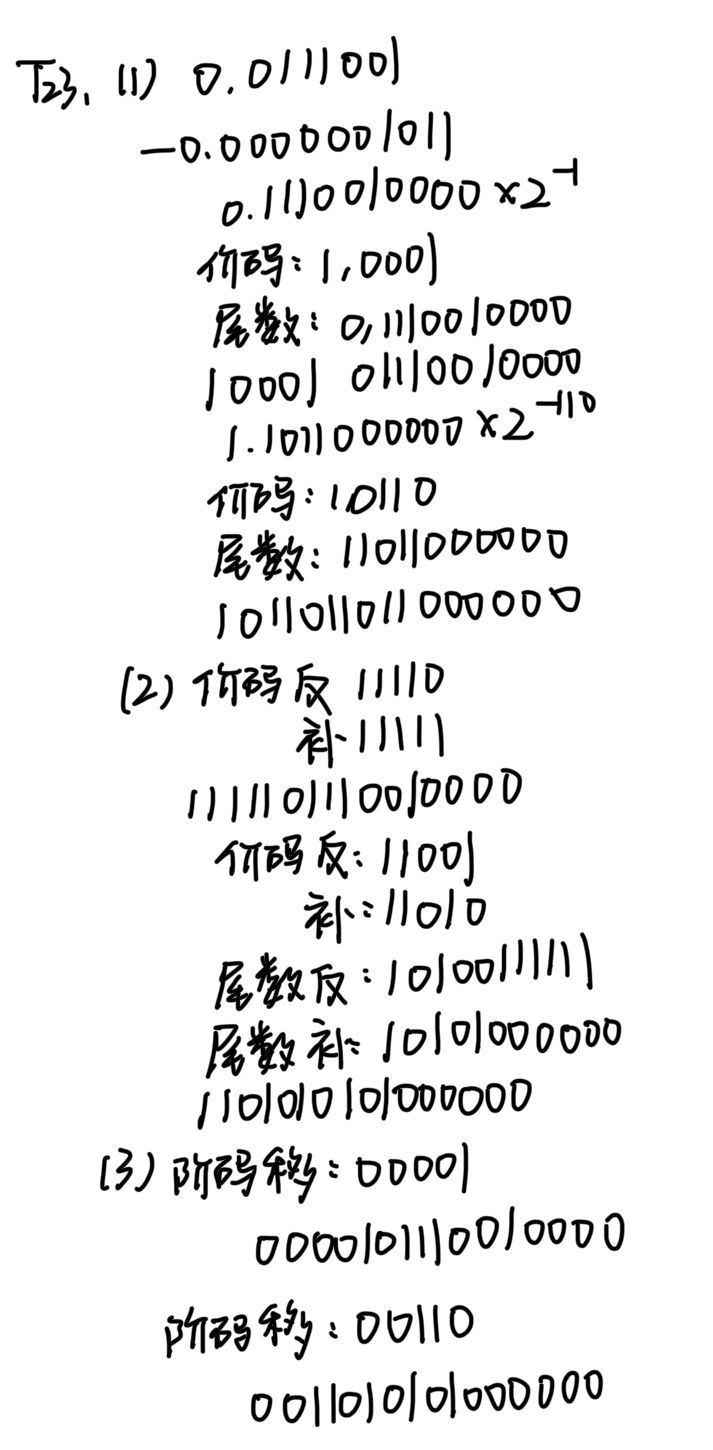 T23. (1) 0.0111001
-0.0000001011
0.1110010000×2^-1
价码：1,0001
尾数：0,1110010000
10001 01110010000
1.1011000000×2^-110
价码：10110
尾数：11011000000
1011011011000000
(2) 价码反 11110
补 11111
1111101110010000
价码反：11001
补：11010
尾数反：10100111111
尾数补：10101000000
1101010101000000
(3) 阶码移：00001
0000101110010000
阶码移：00110
0011010101000000